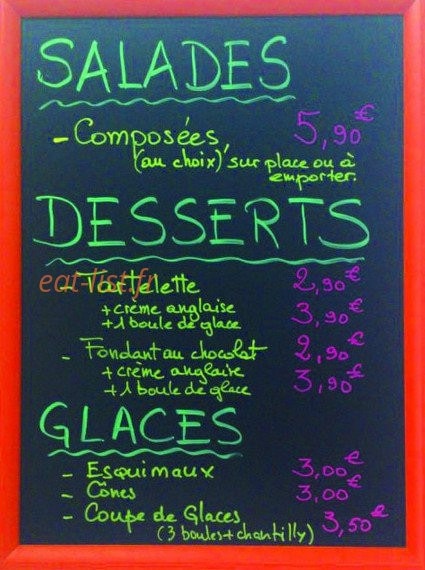 SALADES
- Composées 5,90€
(au choix) sur place ou à
emporter.
DESSERTS
eat-list.fr
- Tartelette 2,90€
+ crème anglaise 3,90€
+ 1 boule de glace
- Fondant au chocolat 2,90€
+ crème anglaise 3,90€
+ 1 boule de glace
GLACES
- Esquimaux 3,00€
- Cônes 3,00€
- Coupe de Glaces 3,50€
(3 boules + chantilly)